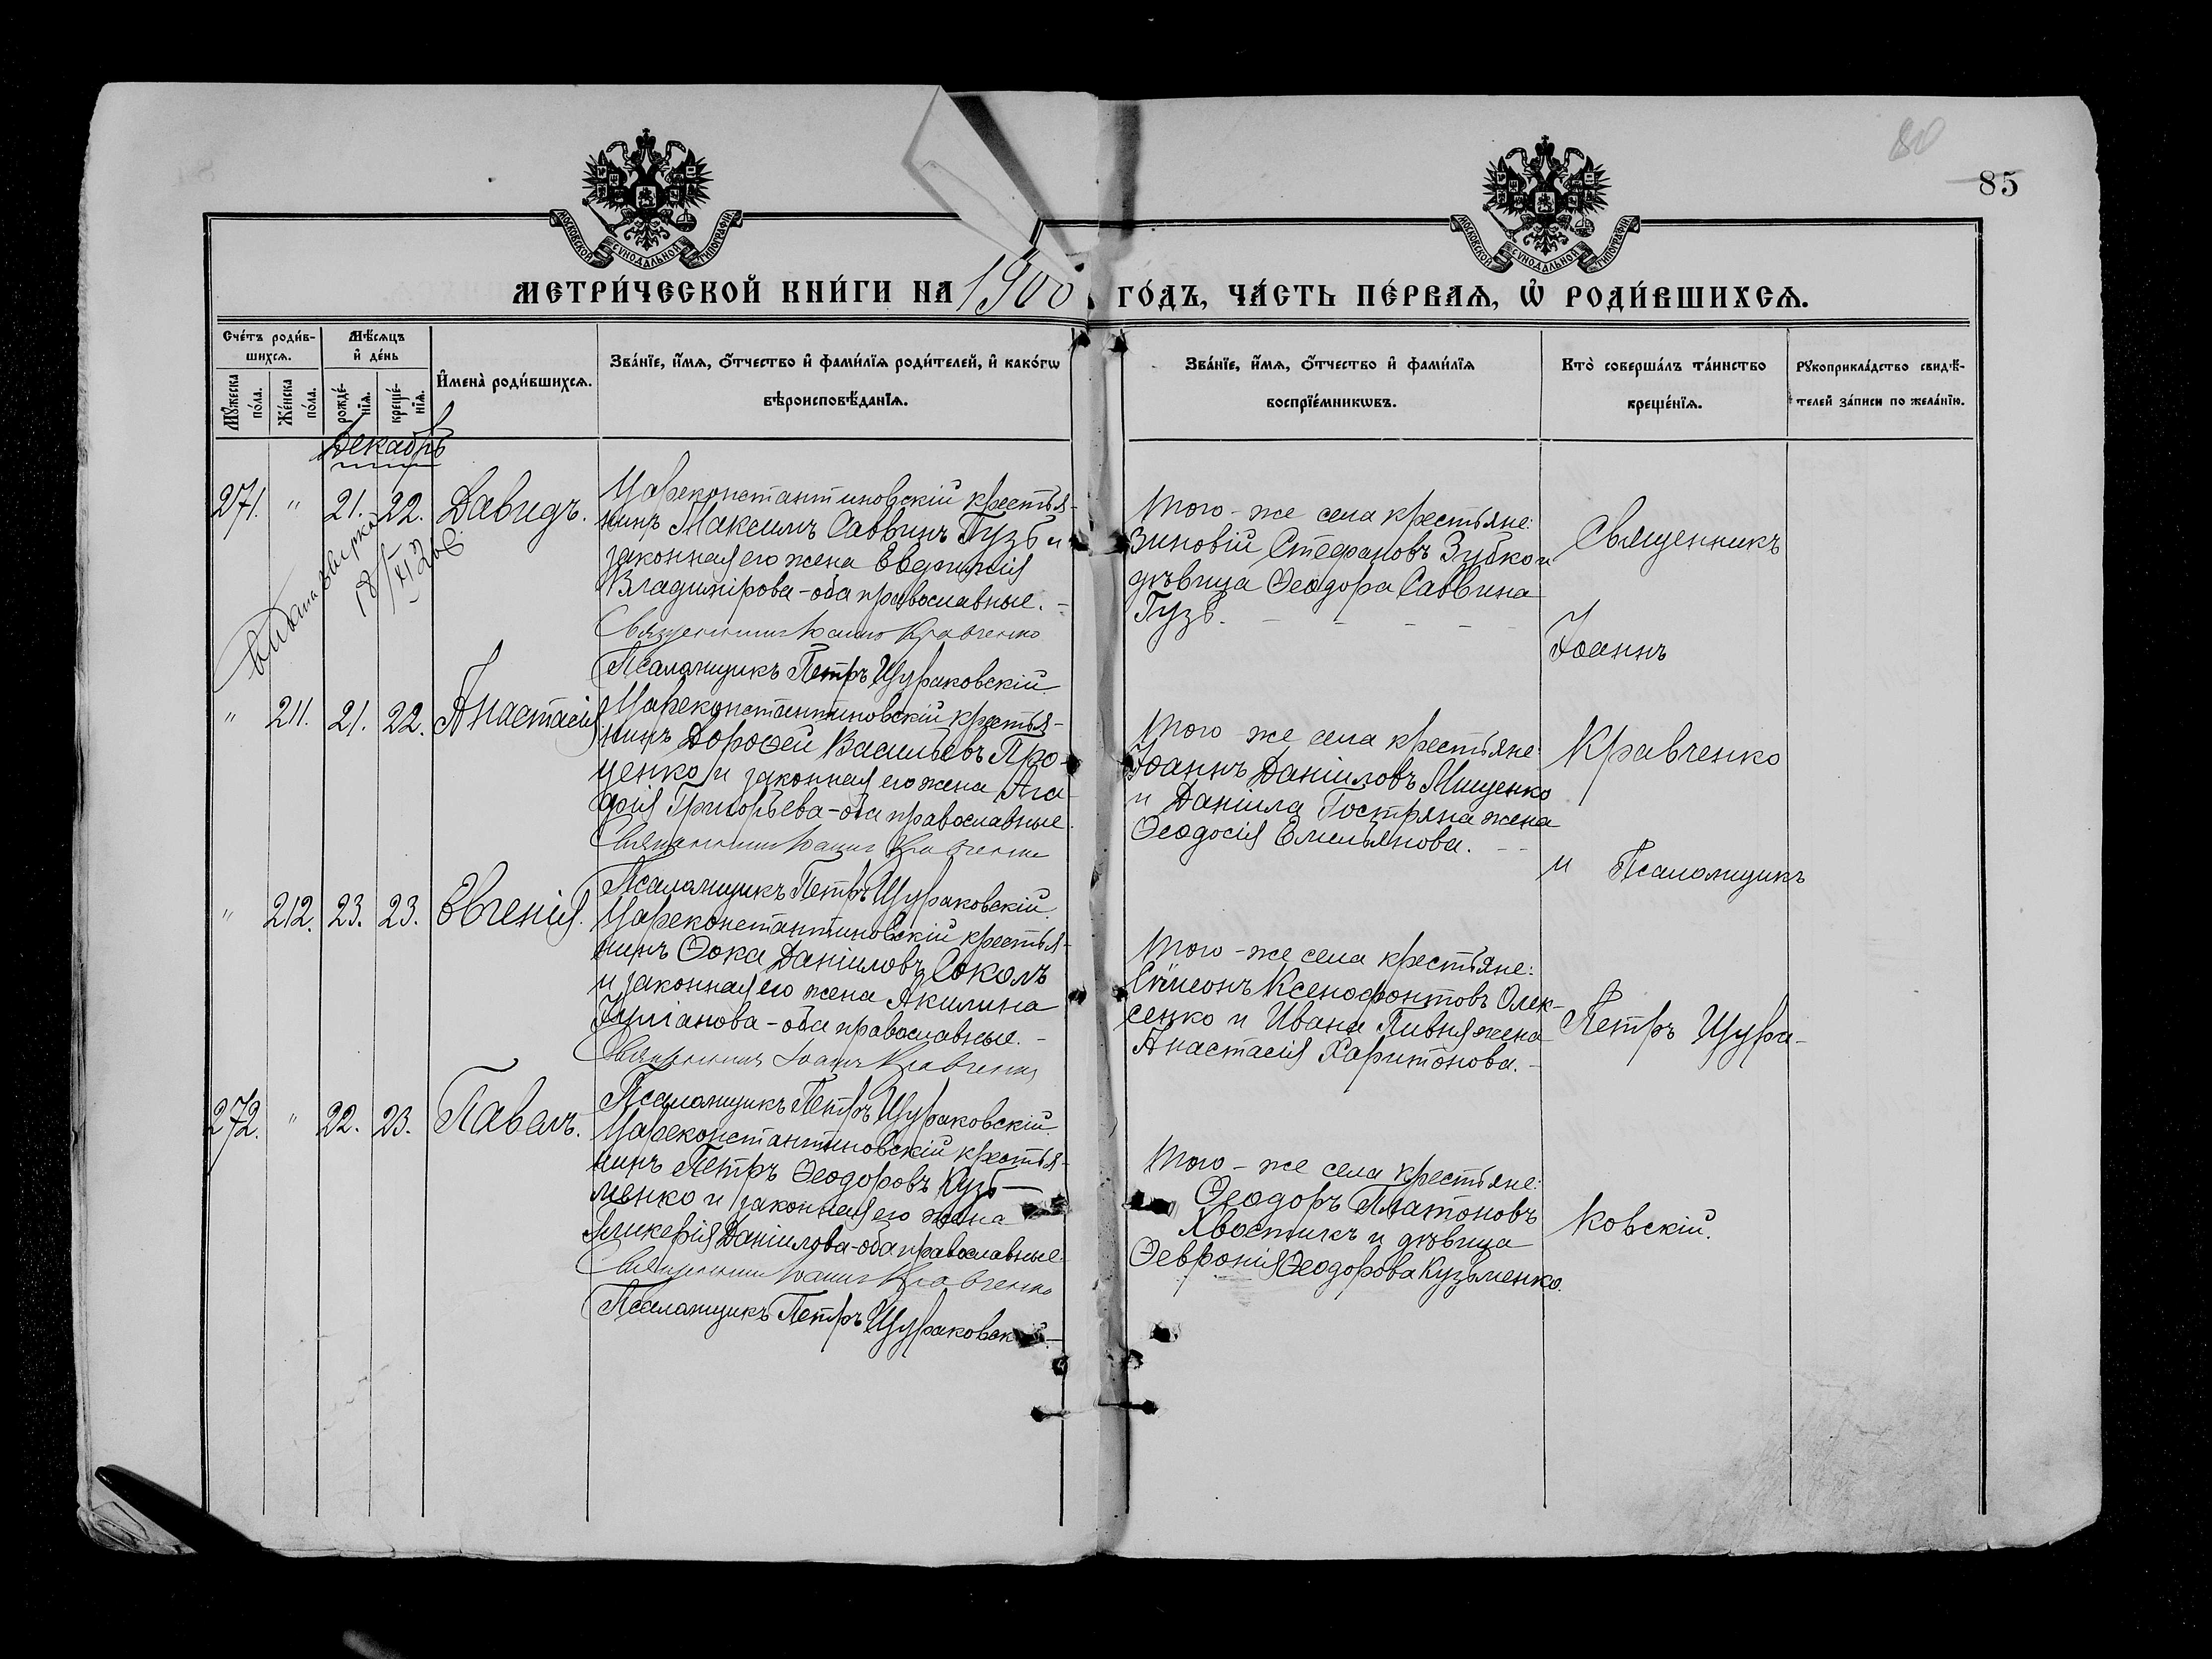 80
85
МОСКОВСКОЙ СѴНОДАЛЬНОЙ ТИПОГРАФІИ
МОСКОВСКОЙ СѴНОДАЛЬНОЙ ТИПОГРАФІИ
МЕТРИ́ЧЕСКОЙ КНИ́ГИ НА 1900 ГО́ДЪ, ЧА́СТЬ ПЕ́РВАѦ, Ѡ҆ РОДИ́ВШИХСѦ.
Сче́тъ роди́в-
шихсѧ.
Мꙋ́жеска по́ла.
Же́нска по́ла.
Мѣ́сѧцъ
и҆ де́нь
рожде́-
нїѧ.
креще́-
нїѧ.
И҆мена̀ роди́вшихсѧ.
Зва́нїе, и҆́мѧ, ѻ҆́тчество и҆ фами́лїѧ роди́телей, и҆ како́гѡ
вѣроисповѣ́данїѧ.
Зва́нїе, и҆́мѧ, ѻ҆́тчество и҆ фами́лїѧ
воспрїе́мникѡвъ.
Кто̀ соверша́лъ та́инство
креще́нїѧ.
Рꙋкоприкла́дство свидѣ́-
телей за́писи по жела́нїю.
Декабрь
271. " 21. 22. Давидъ.
Цареконстантиновскій крестья-
нинъ Максимъ Саввинъ Гузь и
законная его жена Евфимія
Владимірова - оба православные. -
Священникъ Іоаннъ Кравченко
Псаломщикъ Петръ Щураковскій.
Того - же села крестьяне:
Зиновій Стефановъ Зубко и
дѣвица Ѳеодора Саввина
Гузь. - - - - -
Выдана
" 211. 21. 22. Анастасія.
Цареконстантиновскій крестья-
нинъ Дороѳей Васильевъ Про-
ценко и законная его жена Ага-
фія Григорьева - оба православные.
Священникъ Іоаннъ Кравченко
Псаломщикъ Петръ Щураковскій.
Того - же села крестьяне:
Іоаннъ Даніиловъ Мищенко
и Даніила Гостряна жена
Ѳеодосія Емельянова. - -
" 212. 23. 23. Евгенія.
Цареконстантиновскій крестья-
нинъ Ѳока Даніиловъ Соколъ
и законная его жена Акилина
Іуліанова - оба православные. -
Священникъ Іоаннъ Кравченко
Псаломщикъ Петръ Щураковскій.
Того - же села крестьяне:
Сѵмеонъ Ксенофонтовъ Олек-
сенко и Ивана Пивня жена
Анастасія Харитонова. -
272. " 22. 23. Павелъ.
Цареконстантиновскій крестья-
нинъ Петръ Ѳеодоровъ Кузь-
менко и законная его жена
Гликерія Даніилова - оба православные.
Священникъ Іоаннъ Кравченко
Псаломщикъ Петръ Щураковскій. -
Того - же села крестьяне:
Ѳеодоръ Платоновъ
Хвостикъ и дѣвица
Ѳевронія Ѳеодорова Кузьменко.
Священникъ
Іоаннъ
Кравченко
и Псаломщикъ
Петръ Щура-
ковскій.